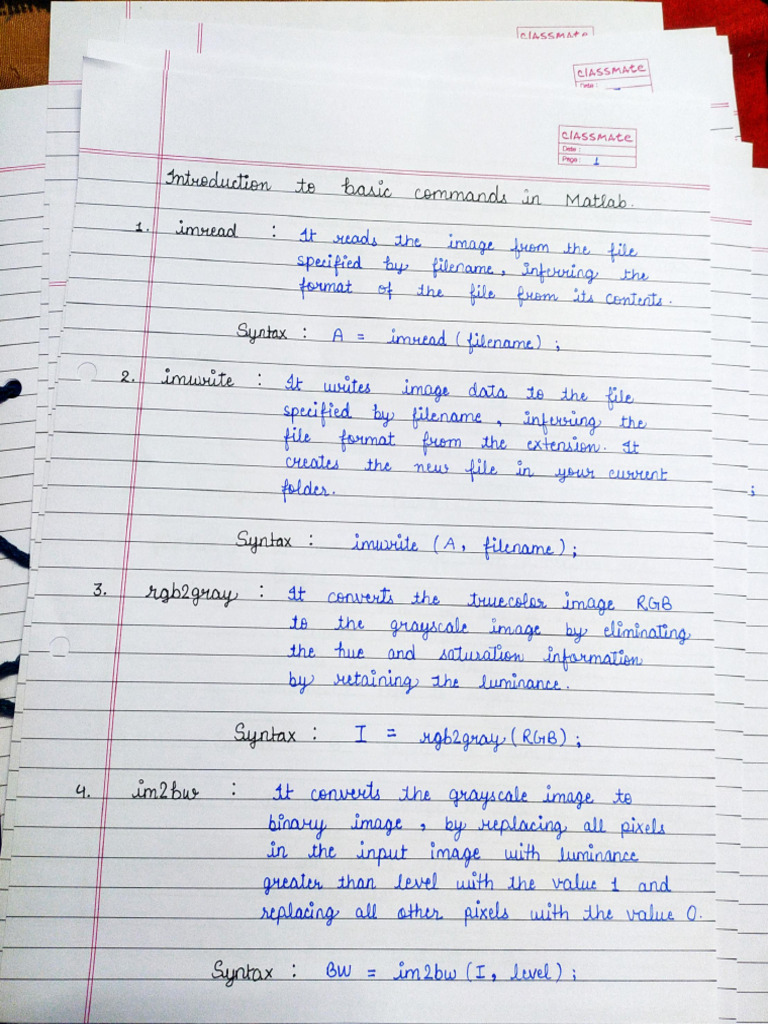 classmate
classmate
Date :
classmate
Date :
Page : 1
Introduction to basic commands in Matlab.
1. imread : It reads the image from the file
specified by filename, inferring the
format of the file from its contents.
Syntax : A = imread (filename) ;
2. imwrite : It writes image data to the file
specified by filename, inferring the
file format from the extension. It
creates the new file in your current
folder.
Syntax : imwrite (A, filename) ;
;
3. rgb2gray : It converts the truecolor image RGB
to the grayscale image by eliminating
the hue and saturation information
by retaining the luminance.
Syntax : I = rgb2gray (RGB) ;
4. im2bw : It converts the grayscale image to
binary image, by replacing all pixels
in the input image with luminance
greater than level with the value 1 and
replacing all other pixels with the value 0.
Syntax : BW = im2bw (I, level) ;